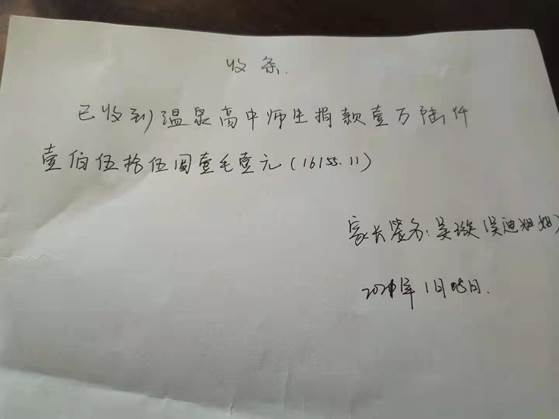 收条.
已收到温泉高中师生捐款壹万陆仟
壹佰伍拾伍圆壹毛壹元(16155.11)
家长签名:吴璇(吴迪姐姐)
1月 日.